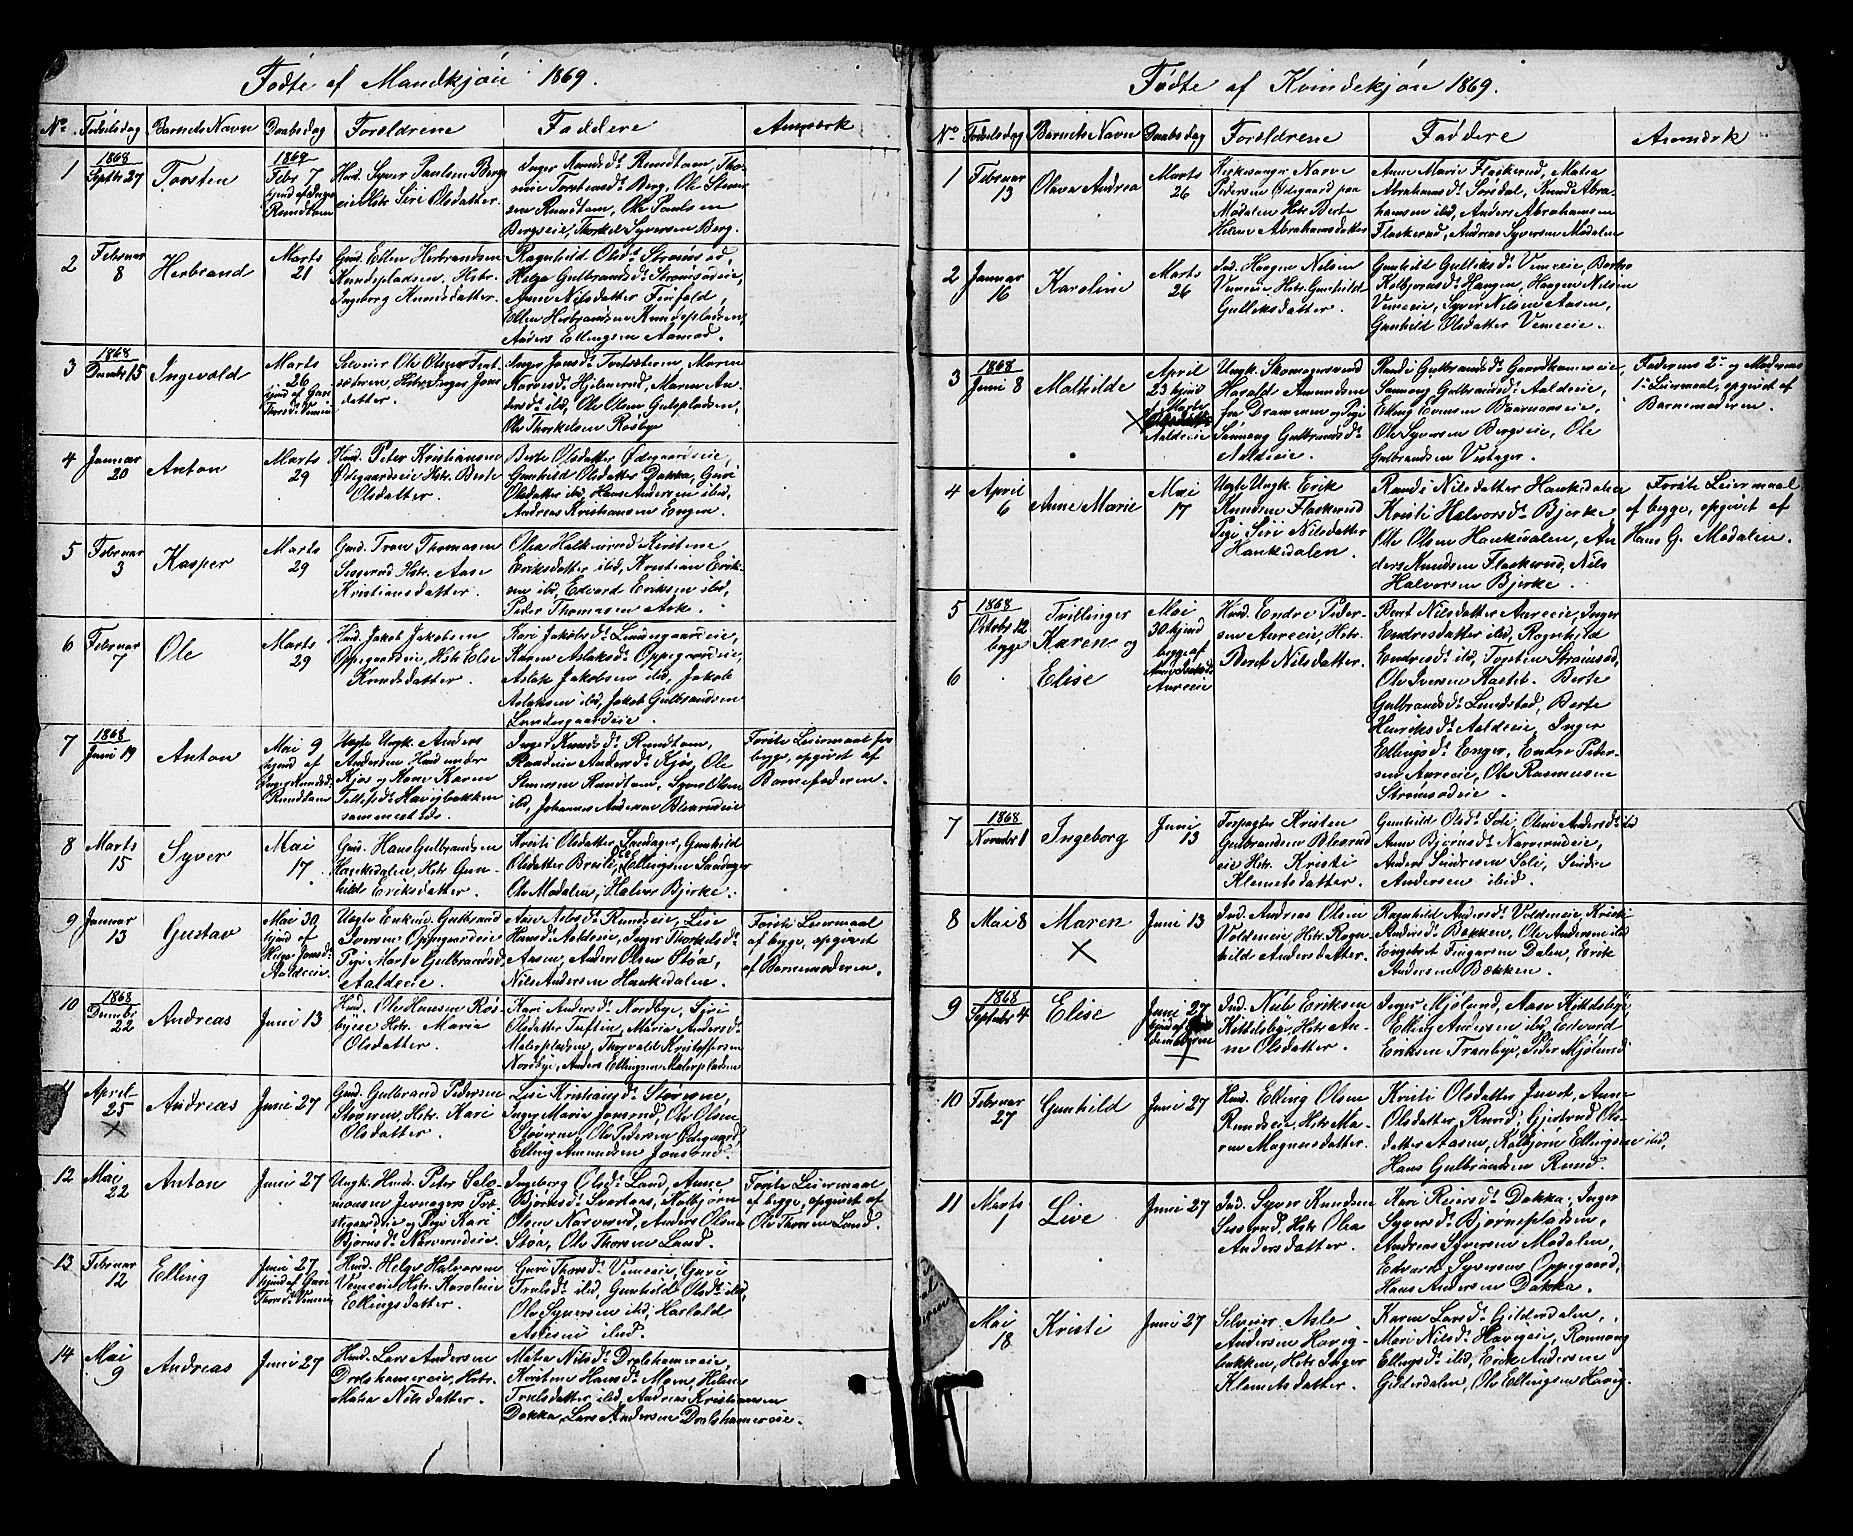 Fødte af Mandkjøn 1869.
No. Fødselsdag Barnets Navn Daabsdag Forældrene Faddere Anmærk
1 1868 Septbr 27 Torsten 1869 Febr 7 Rundtom
Husm. Syver Paulsen Berg-
eie Hstr. Siri Olsdatter.
Inger Rundtom, Tho-
Torstensdr. Berg, Ole Stener-
sen Rundtom, Ole Paulsen
Bergseie, Thorkel Syversen Berg.
2 Februar 8 Herbrand Marts 21
Gmd. Ellen Herbrandsen
Knudspladsen, Hstr.
Ingeborg Knudsdatter.
Ragnhild Olsdr. Strømsød,
Helga Gulbrandsdr. Strømsødeie,
Anne Nilsdatter Finfald,
Ellen Herbrandsen Knudspladsen,
Anders Ellingsen Aamod.
3 1868 Decmbr 15 Ingevald Marts 26 hjmd af Guri Thorsdr. Vemeeie
Selveier Ole Olsen
Hstr. Inger Jons-
datter.
Inger Jonsdr. Maren
Narvesdr. Hjelmerud, Maren An-
dersdr. ibid, Ole Olsen Gulspladsen,
Ole Thorkelsen Rosbye
4 Januar 20 Anton Marts 29
Husm. Peter Kristiansen
Ødegaardseie Hstr. Berte
Olsdatter.
Berte Olsdatter Ødegaardseie,
Gunhild Olsdatter Dokka, Guri
Olsdatter ibid, Hans Andersen ibid,
Andreas Kristiansen Engen.
5 Februar 3 Kasper Marts 29
Gmd. Tron Thomasen
Sesserud Hstr. Aase
Kristiansdatter.
Olea Halkinrud Kirstine
Eriksdatter ibid, Kristian Erik-
sen ibid, Edvard Eriksen ibid,
Peder Thomasen Ask.
6 Februar 7 Ole Marts 29
Husm. Jakob Jakobsen
Oppegaardeie Hstr. Else
Knudsdatter.
Kari Jakobsdr. Lundsgaardeie,
Karen Aslaksdr. Oppegaardeie,
Aslak Jakobsen ibid, Jakob
Aslaksen ibid, Jakob Gulbrandsen
Lundesgaardeie.
7 1868 Juni 19 Anton Mai 9 hjmd af Inger Knudsdr. Rundtom
Uægte Ungk. Anders
Andersen Hval under
Kjøs og Kone Karen
Tollefsdr. Havigbakken
sammesteds.
Inger Knudsdr. Rundtom,
Randine Andersdr. Kjøs, Ole
Stenersen Rundtom, Syver Olsen
ibid, Johannes Andersen Blearudeie
Første Leiermaal for
begge, opgivet af
Barnefaderen.
8 Marts 15 Syver Mai 17
Gmd. Hans Gulbrandsen
Hankedalen, Hstr. Gun-
hild Eriksdatter.
Kristi Olsdatter Sandager, Gunhild
Olsdatter Breili, Ellingsen Sandager
Ole Modalen, Halvor Bjerke.
9 Januar 13 Gustav Mai 30 hjmd af Helge Jonsdr. Aaldeeie
Uægte Enkemd. Gulbrand
Iversen Oppegaardeie
Pige Marte Gulbrandsdr.
Aaldeeie.
Aase Aslesdr. Rundseie, Lise
Hansdr. Aaldeeie, Inger Thorkelsdr.
Aasen, Anders Olsen Stöa,
Nils Andersen Hankedalen.
Første Leiermaal
af begge, opgivet
af Barnemoderen.
10 1868 Decmbr 22 Andreas Juni 13
Husm. Ole Hansen Røs-
byeie Hstr. Maria
Olsdatter.
Kari Andersdr. Nordbye, Siri
Olsdatter Tuftin, Maria Andersdr.
Malerpladsen, Thorvald Kristoffersen
Nordbye, Anders Ellingsen Malerpladsen
11 April 25 X Andreas Juni 27
Gmd. Gulbrand Pedersen
Støveren, Hstr. Kari
Olsdatter.
Lise Kristiansdr. Støveren,
Inger Marie Jonsrud, Ole Olsen
Støveren, Ole Pedersen Ødegaard,
Elling Amundsen Jonsrud.
12 Mai 22 Anton Juni 27
Ungk. Husm. Peter Salo-
monsen
og Pige Kari
Bjørnsdr. Narverudeie.
Ingeborg Olsdr. Land, Anne
Bjørnsdr. Svartaas, Kolbjørn
Olsen Narverud, Anders Olsen
Stöa, Ole Thoresen Land.
Første Leiermaal
af begge, opgivet af
Ole Thoresen Land.
13 Februar 12 Elling Juni 27 hjmd af Guri Thorsdr. Vemeeie
Husm. Helge Halvorsen
Vemeeie Hstr. Karoline
Ellingsdatter.
Guri Thorsdr. Vemeeie, Guri
Trulsdr. ibid, Gunhild Olsdr. ibid,
Ole Syversen ibid, Harald
Aslesen ibid.
14 Mai 9 Andreas Juni 27
Husm. Lars Andersen
Drolshammereie, Hstr.
Matea Nilsdatter.
Matea Nilsdr. Drolshammereie,
Kirstine Hansdr. Moen, Helene
Trulsdatter ibid, Andreas Kristiansen
Dokka, Lars Andersen Drolshammereie.
3
Fødte af Kvindekjøn 1869.
No. Fødselsdag Barnets Navn Daabsdag Forældrene Faddere Anmærk
1 Februar 13 Olava Andrea Marts 26
Kirkesanger Narve
Pedersen Ødegaard paa
Modalen Hstr. Berte
Helene Abrahamsdatter
Anne Marie Flaskerud, Matea
Abrahamsdr. Sørsdal, Knud Abra-
hamsen ibid, Anders Abrahamsen
Flaskerud, Andreas Syversen Modalen
2 Januar 16 Karoline Marts 26
Ind. Haagen Nilsen
Vemeeie Hstr. Gunhild
Gulleksdatter.
Gunhild Gulleksdr. Vemeeie, Berte
Kolbjørnsdr. Haugen, Haagen Nilsen
Vemeeie, Syver Nilsen Aasen,
Gunhild Olsdatter Vemeeie.
3 1868 Juni 8 Mathilde April 23 hjmd af X Aaldeeie
Ungk. Skomagersvend
Harald Amundsen
fra Drammen og Pige
Sønnøug Gulbrandsdr.
Aaldeeie.
Randi Gulbrandsdr. Gaardhammereie,
Sønnøug Gulbrandsdr. Aaldeeie,
Elling Evensen
Ole Syversen Bergseie, Ole
Gulbrandsen Vestager.
Faderens 2det og Moderens
1ste Leiermaal, opgivet af
Barnemoderen.
4 April 6 Anne Marie Mai 17
Uægte Ungk. Erik
Knudsen Flaskerud
Pige Siri Nilsdatter
Hankedalen.
Randi Nilsdatter Hankedalen
Kristi Halvorsdr. Bjerke
Ole Olsen Hankedalen, An-
ders Knudsen Flaskerud, Nils
Halvorsen Bjerke.
Første Leiermaal
af begge, opgivet af
Hans G. Modalen.
5 1868 Octobr 12 begge Tvillinger Karen og
6 Elise Mai 30 hjmd begge af Aureeie
Husm. Endre Peder-
sen Aureeie, Hstr.
Beret Nilsdatter.
Beret Nilsdatter Aureeie, Inger
Endresdatter ibid, Ragnhild
Endresdr. ibid, Torsten Strømsød,
Ole Iversen Kastet. Berte
Gulbrandsdr. Lundstad, Berte
Henriksdr. Aaldeeie, Inger
Ellingsdr. Enger, Endre Peder-
sen Aureeie, Ole Rasmussen
Strømsødeie.
7 1868 Novmbr 1 Ingeborg Juni 13
Forpagter Kristen
Gulbrandsen Blearud-
eie Hstr. Kristi
Klemetsdatter.
Gunhild Olsdr. Soli, Oline Andersdr. ibid
Anne Bjørnsdr. Narverudeie,
Anders Sindresen Soli, Sindre
Andersen ibid.
8 Mai 8 Maren X Juni 13
Ind. Andreas Olsen
Voldeneie, Hstr. Ragn-
hild Andersdatter.
Ragnhild Andersdr. Voldeneie, Kristi
Andersdr. Bækken, Ole Andersen ibid
Engebret Fingarsen Dalen, Erik
Andersen Bækken.
9 1868 Septmbr 4 Elise Juni 27
Ind. Nils Eriksen
Kittelsbye, Hstr. An-
ne Olsdatter.
Inger Mjølund, Aase Kittelsbye,
Elling Andersen ibid, Edvard
Eriksen Tranbye, Peder Mjølund
10 Februar 27 Gunhild Juni 27
Husm. Elling Olsen
Rundseie, Hstr. Ma-
ren Magnusdatter.
Kristi Olsdatter Juvet, Anne
Olsdatter, Rund, Gjertrud Ols-
datter Aasen, Kolbjørn Ellingsen ibid,
Hans Gulbrandsen Rund.
11 Marts 1 Live Juni 27
Ind. Syver Knudsen
Sesserud, Hstr. Olea
Andersdatter.
Kari Reiersdr. Dokka, Inger
Syversdr. Bjørnepladsen,
Andreas Syversen Modalen,
Edvard Syversen Oppegaard,
Hans Andersen Dokka.
Mai 18 Kristi Juni 27
Selveier Asle
Andersen Havig-
bakken, Hstr. Inger
Klemetsdatter.
Karen Larsdr. Gilderdalen,
Mari Nilsdr. Havigeie, Rønnoug
Ellingsdr. ibid, Erik Andersen
Gilderdalen, Ole Ellingsen Havig.